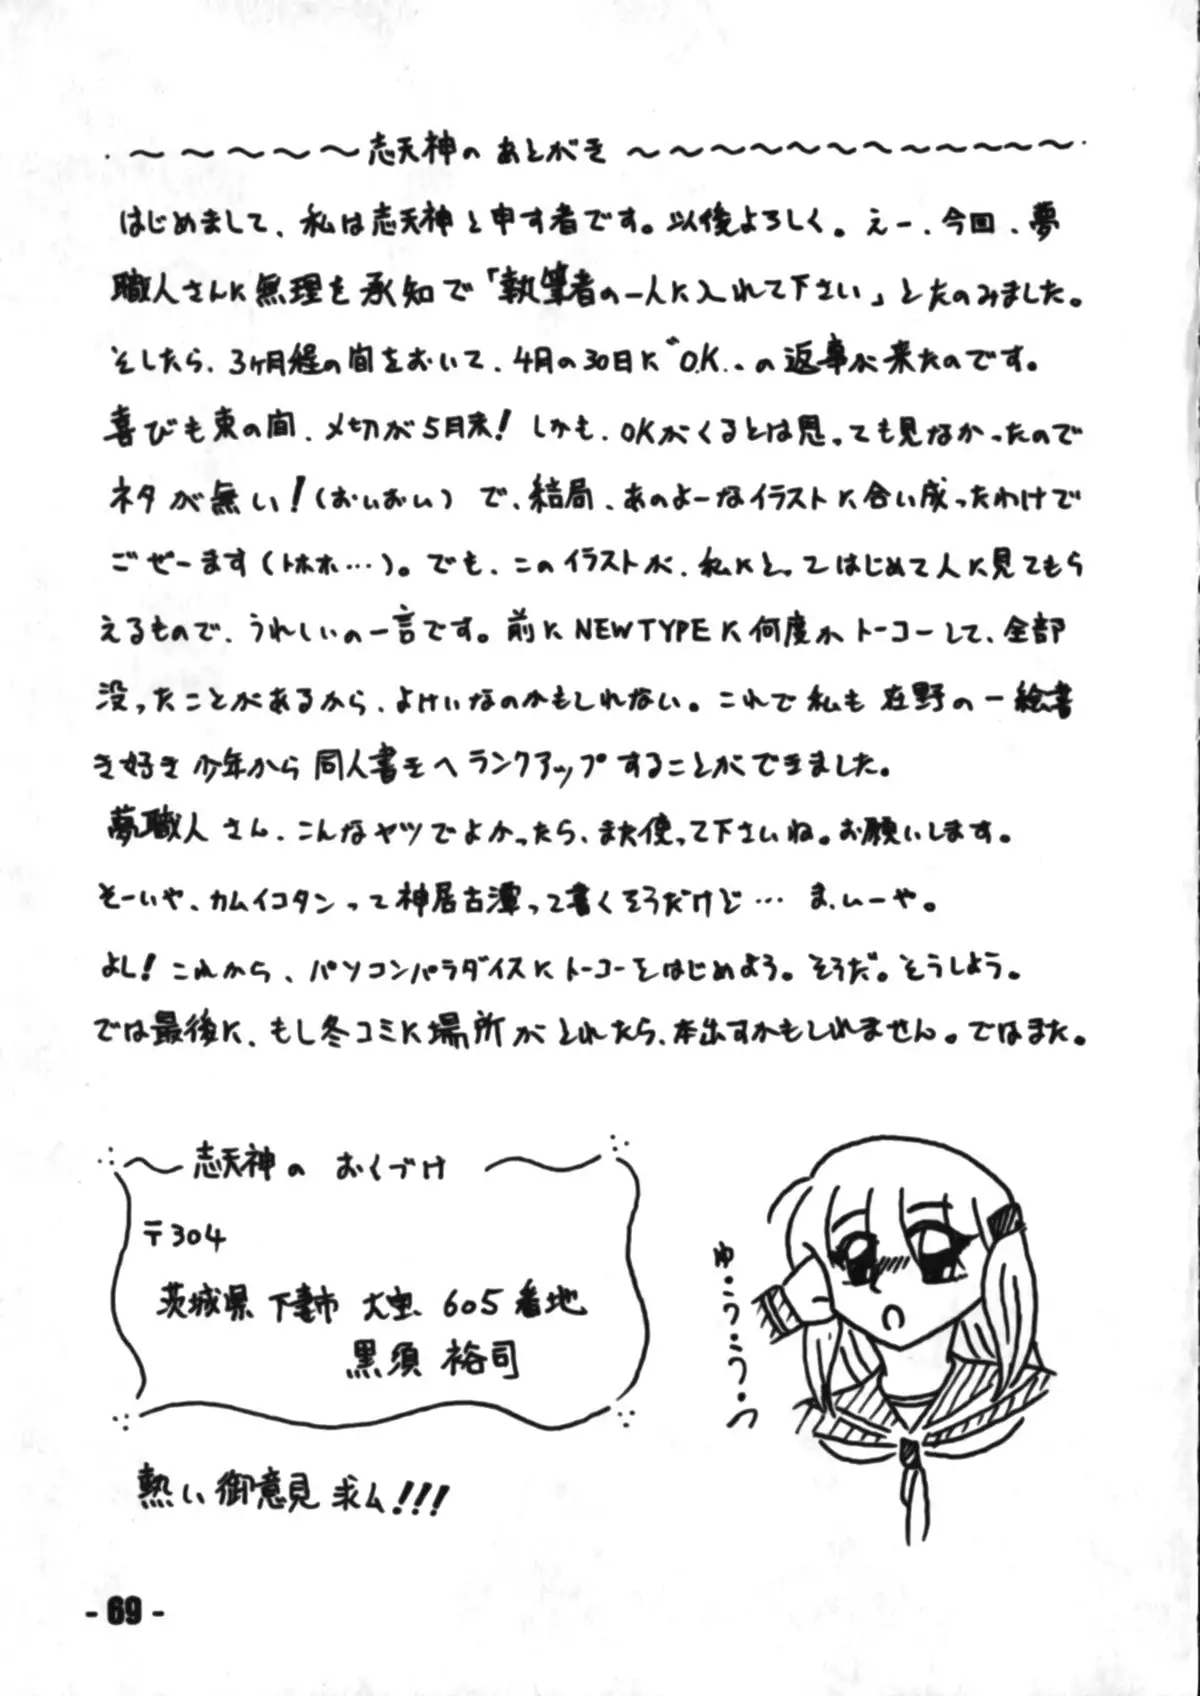 ～～～～～志天神の あとがき～～～～～～～～～～～
はじめまして、私は志天神と申す者です。以後よろしく。えー、今回、夢
職人さんに無理を承知で「執筆者の一人に入れて下さい」とたのみました。
そしたら、3ヶ月程の間をおいて、4月の30日に〝O.K.〟の返事が来たのです。
喜びも束の間、〆切が5月末！しかも、OKがくるとは思っても見なかったので
ネタが無い！(おいおい)で、結局、あのよーなイラストに合い成ったわけで
ごぜーます(トホホ…)。でも、このイラストが、私にとってはじめて人に見てもら
えるもので、うれしいの一言です。前にNEWTYPEに何度かトーコーして、全部
没ったことがあるから、よけいなのかもしれない。これで私も在野の一絵書
き好き少年から同人書きへランクアップすることができました。
夢職人さん、こんなヤツでよかったら、また使って下さいね。お願いします。
そーいや、カムイコタンって神居古潭って書くそうだけど… ま、いーや。
よし！これから、パソコンパラダイスにトーコーをはじめよう。そうだ。そうしよう。
では最後に、もし冬コミに場所がとれたら、本出すかもしれません。ではまた。
志天神の おくづけ
〒304
茨城県 下妻市 大宝 605番地
黒須 裕司
熱い御意見求ム!!!
ゆ・う・う・つ
- 69 -